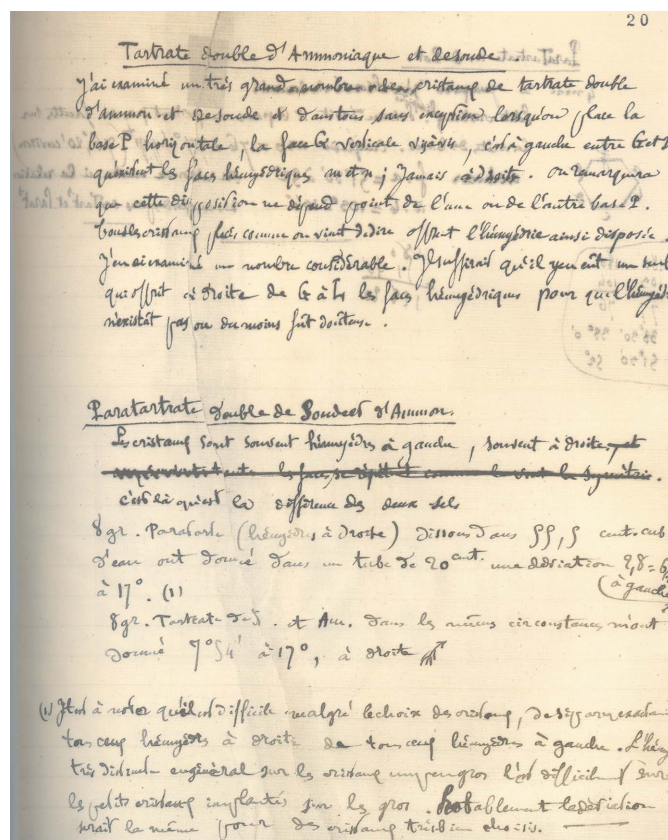 20
Tartrate double d'Ammoniaque et de soude
J'ai examiné un très grand nombre de cristaux de tartrate double
d'ammon et de soude et dans tous sans exception lorsqu'on place la
base P horizontale, la face G verticale vis à vis, c'est à gauche entre G et
qu'existent les faces hémyédriques m et n ; jamais à droite. on remarquera
que cette disposition ne dépend point de l'une ou de l'autre base P.
tous les cristaux placés comme on vient de dire offrent l'hémyédrie ainsi disposée.
J'en ai examiné un nombre considérable. Il suffirait qu'il y en eût un seul
qui offrit à droite de G à h les faces hémyédriques pour que l'hémyédrie
n'existât pas ou du moins fût douteuse.
Paratartrate double de Soude et d'Ammon.
Les cristaux sont souvent hémyèdres à gauche, souvent à droite, et
les faces se répètent comme le veut la symétrie.
c'est là qu'est la différence des deux sels
8 gr. Paratartr (hémyèdres à droite) dissous dans 55,5 cent. cub
d'eau ont donné dans un tube de 20 cent. une déviation
(à gauche
à 17°. (1)
8 gr. Tartrate de S. et Am. dans les mêmes circonstances m'ont
donné 7° 54' à 17°, à droite
(1) Il est à noter qu'il est difficile malgré le choix des cristaux, de séparer exactement
tous ceux hémyèdres à droite de tous ceux hémyèdres à gauche. L'hémy
très distincte en général sur les cristaux un peu gros l'est difficilement sur
les petits cristaux implantés sur les gros. Probablement la déviation
serait la même pour des cristaux très bien choisis.